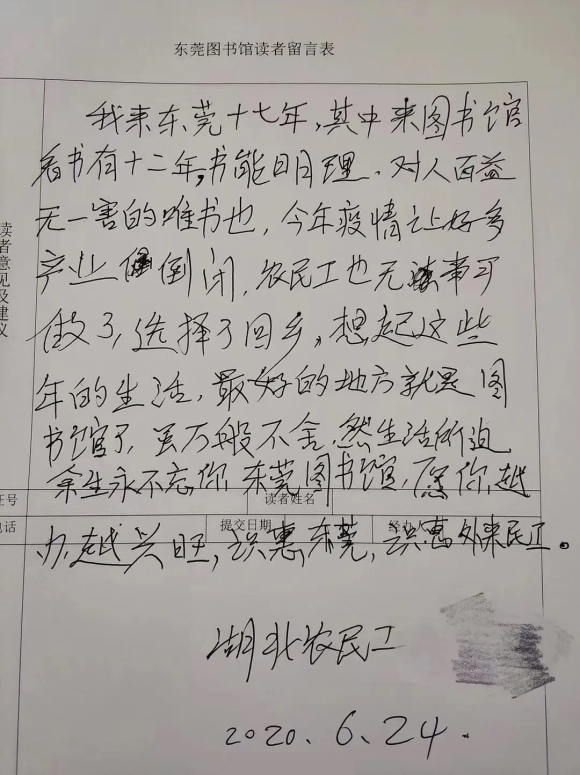 东莞图书馆读者留言表
我来东莞十七年,其中来图书馆
看书有十二年,书能明理、对人百益
无一害的唯书也,今年疫情让好多
产业倒闭,农民工也无事可
做了,选择了回乡,想起这些
年的生活,最好的地方就是图
书馆了,虽万般不舍,然生活所迫
余生永不忘你,东莞图书馆,愿你越
办越兴旺,识惠东莞,识惠外来民工。
读者意见及建议
证号
读者姓名
电话
提交日期
经办人
湖北农民工
2020、6.24.